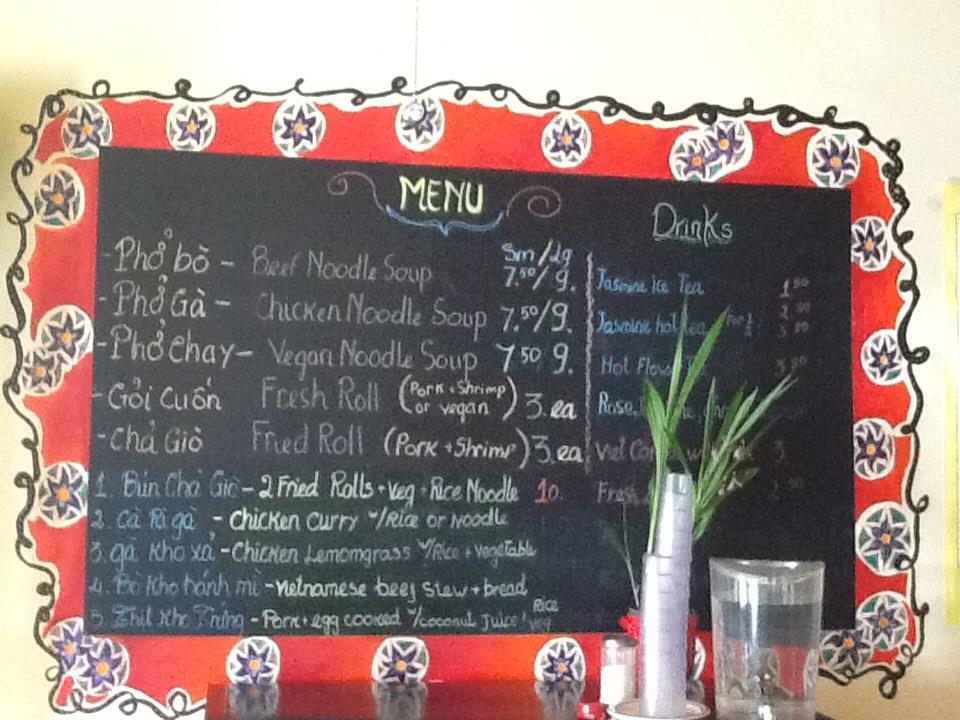 MENU
Sm/Lg
-Phở bò - Beef Noodle Soup 7.50/9.
-Phở Gà - Chicken Noodle Soup 7.50/9.
-Phở Chay - Vegan Noodle Soup 7 50 9.
-Gỏi Cuốn Fresh Roll (Pork + Shrimp or vegan) 3.ea
-Chả Giò Fried Roll (Pork + Shrimp) 3.ea
1. Bún Chả Giò - 2 Fried Rolls + Veg + Rice Noodle 10.
2. Cà Ri gà - Chicken Curry w/Rice or Noodle
3. gà kho xả - Chicken Lemomgrass w/Rice + vegetable
4. Bò Kho bánh mì - Vietnamese beef stew + bread
5. Thit Kho Trứng - Pork + egg cooked w/coconut juice Rice veg
Drinks
Jasmine Ice Tea 1.50
Jasmine hot tea
Hot
Rose,
Viet 3.
Fresh 2.50